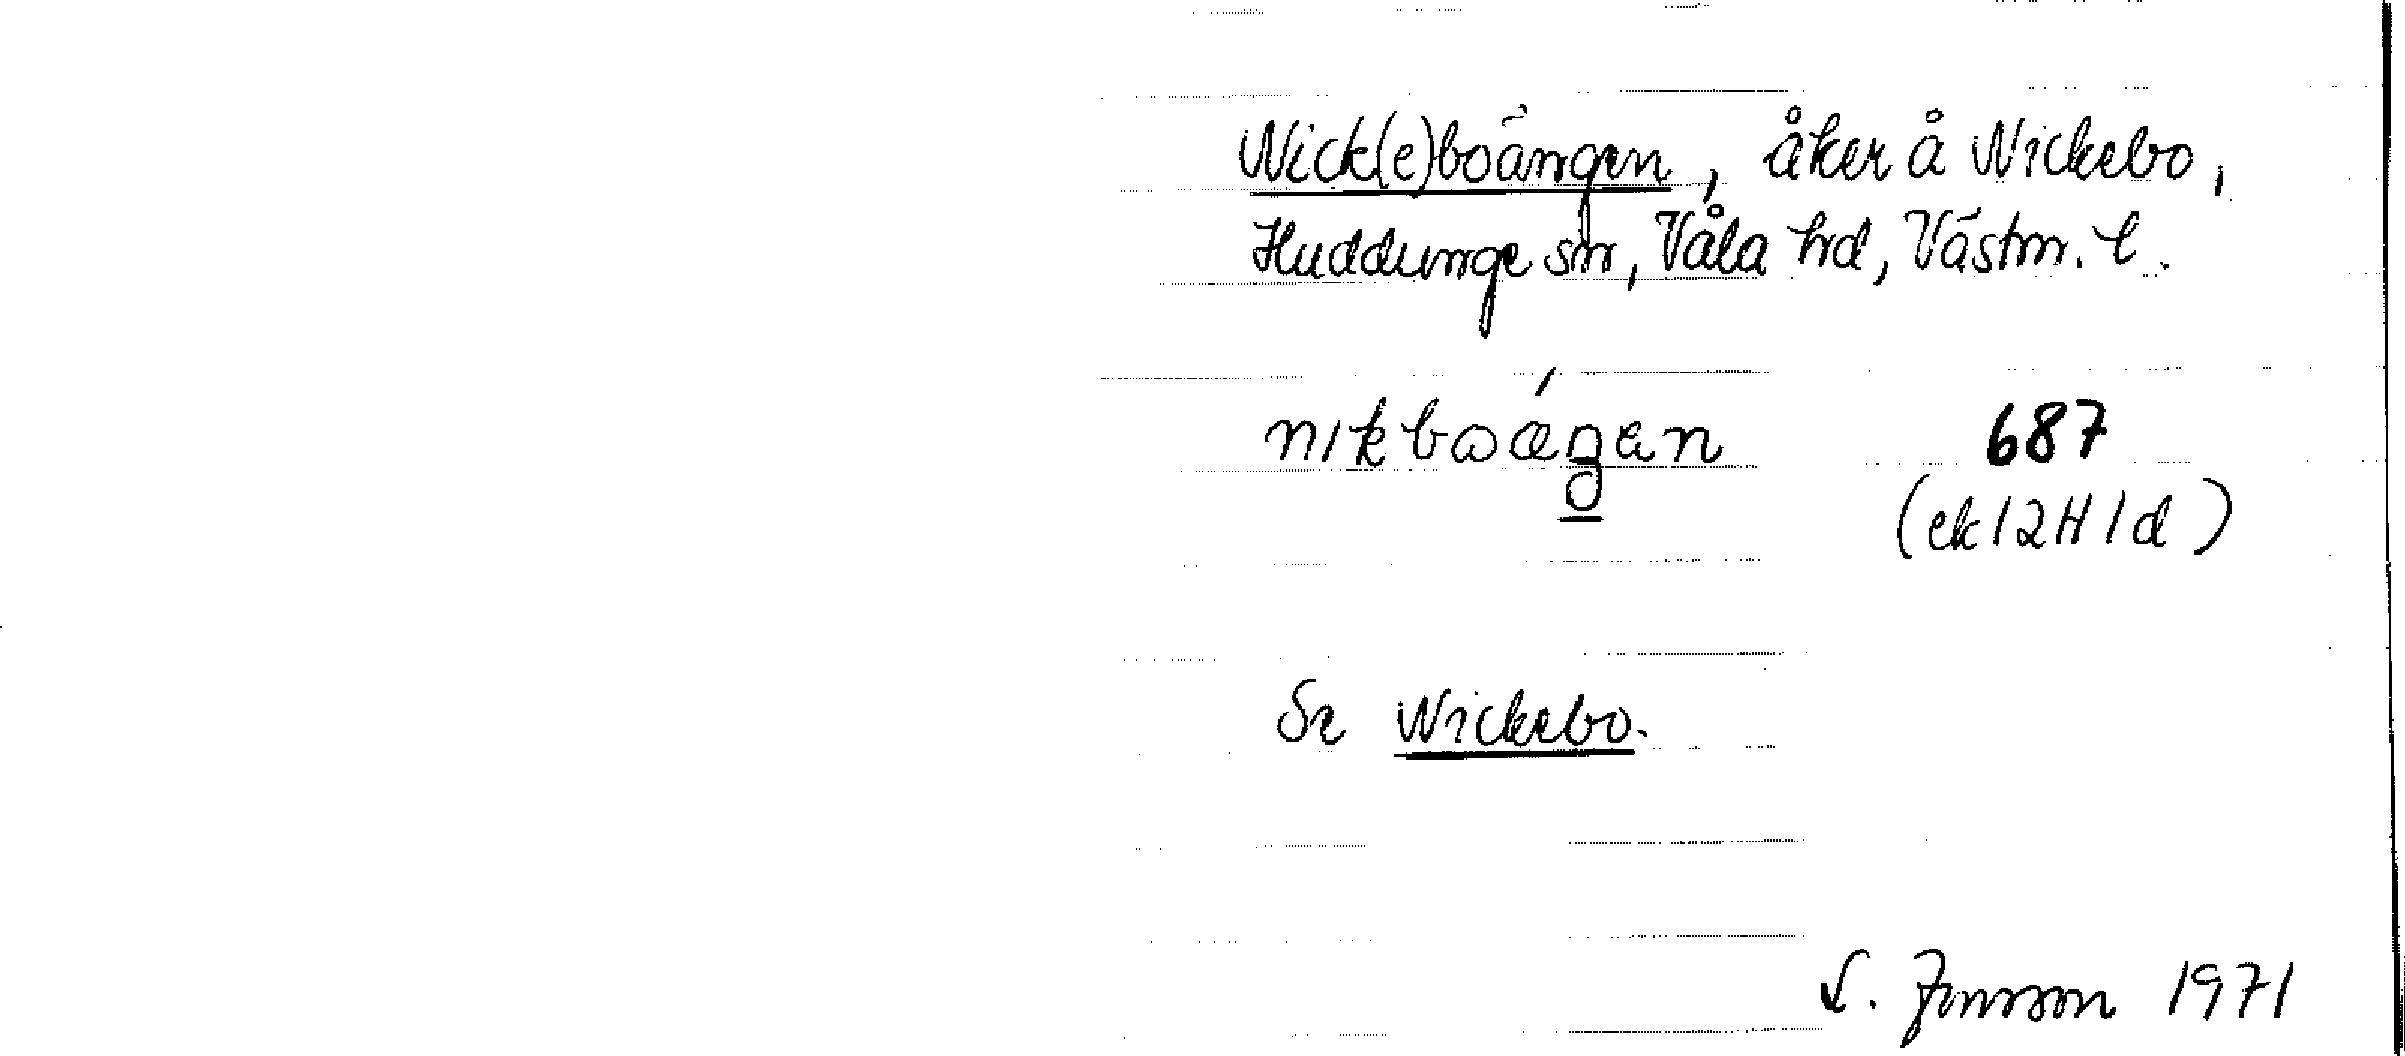 Nick(e)boängen, åker å Nickebo,
Huddunge sn, Våla hd, Västm. l.
nɪkboǽŋen 687
(ek 12H1d)
Se Nickebo.
S. Jonsson 1971